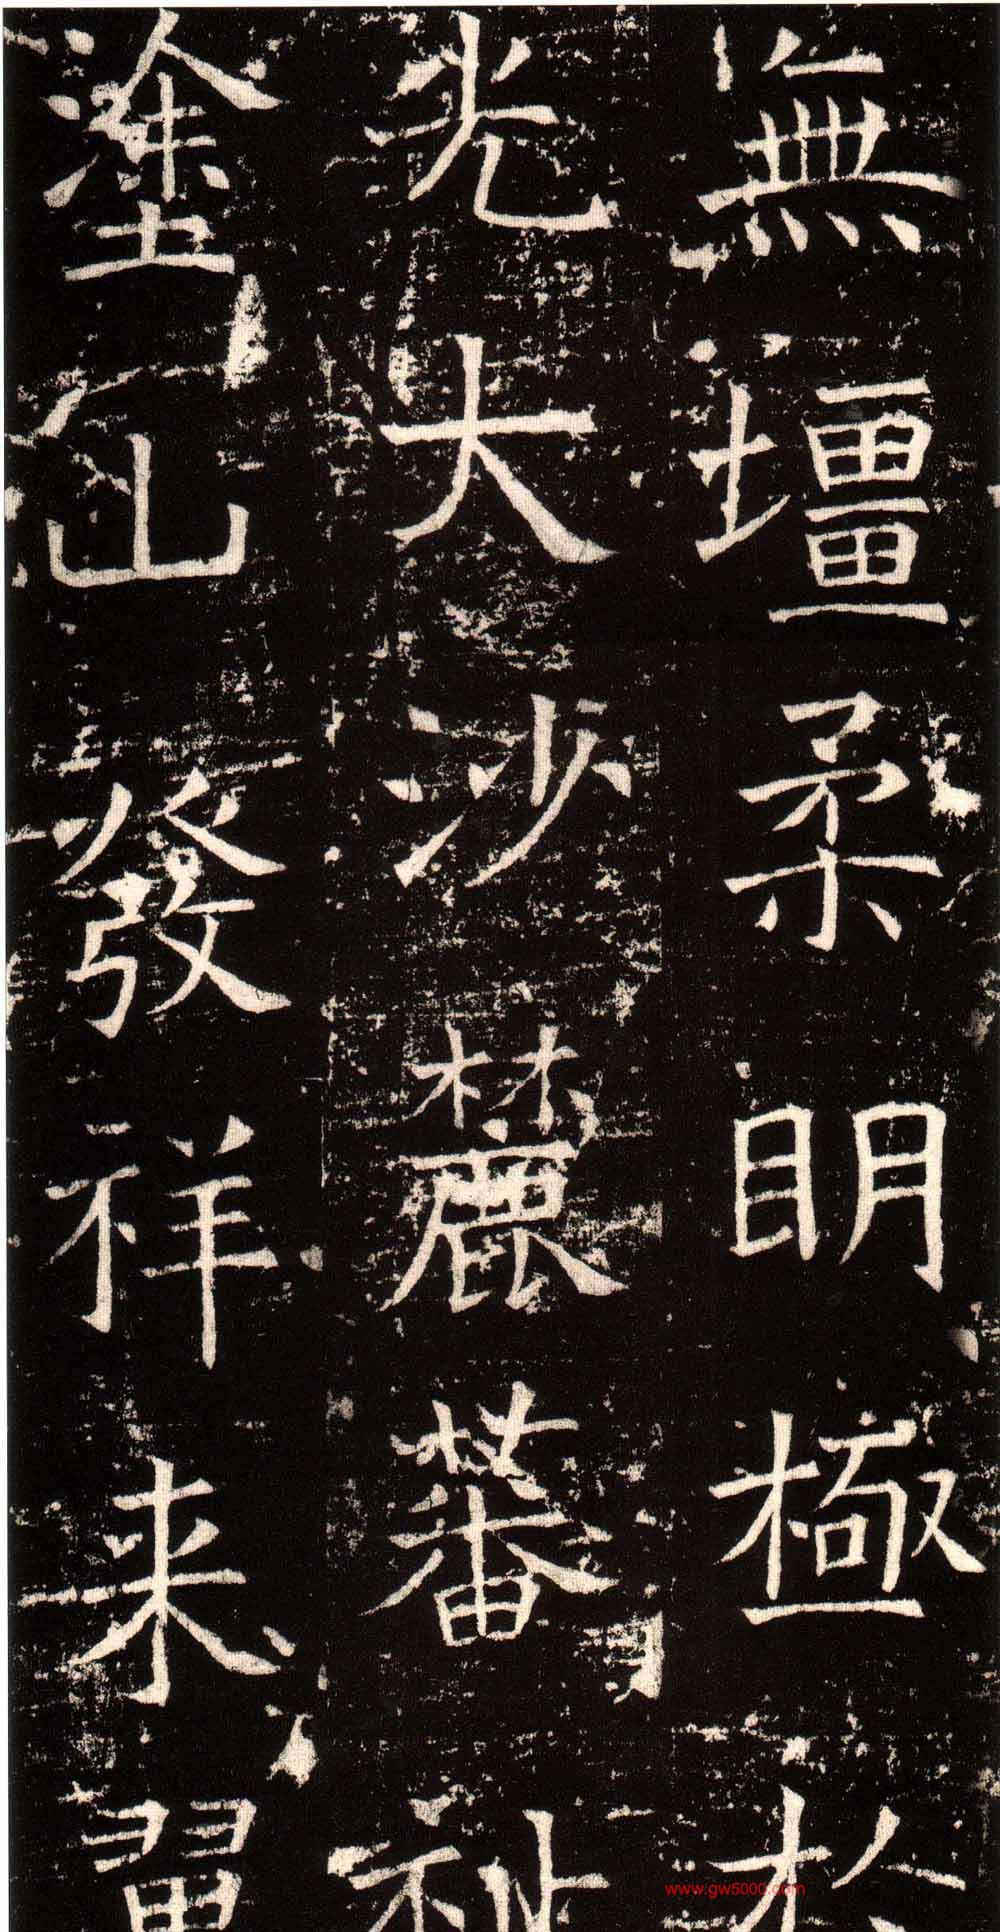 無壃柔眀極於
光大沙麓蕃祉
塗山發祥来翼
www.gw5000.com